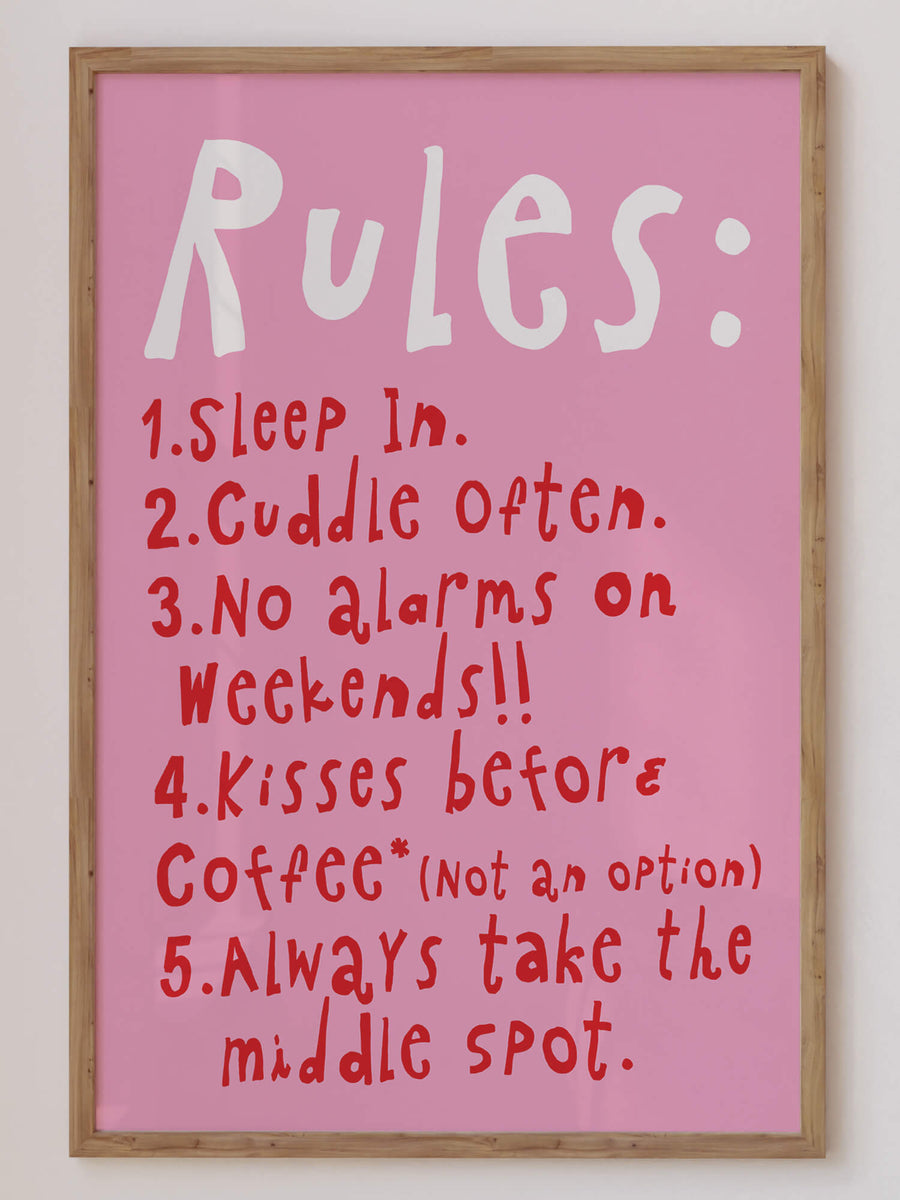 Rules:
1.Sleep In.
2.Cuddle often.
3.No alarms on
Weekends!!
4.Kisses before
Coffee* (Not an option)
5.Always take the
middle spot.